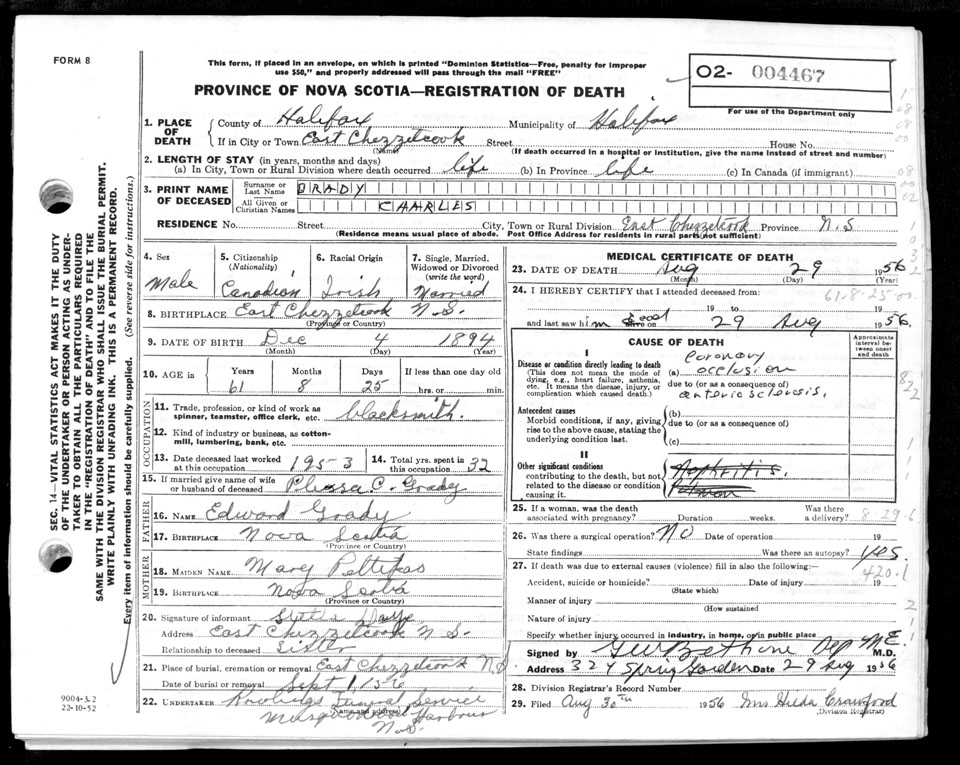 FORM 8
This form, if placed in an envelope, on which is printed "Dominion Statistics—Free, penalty for improper
use $50," and properly addressed will pass through the mail "FREE"
O2- 004467
For use of the Department only
PROVINCE OF NOVA SCOTIA—REGISTRATION OF DEATH
1. PLACE OF DEATH
County of Halifax Municipality of Halifax
If in City or Town East Chezzetcook Street House No.
(Name) (If death occurred in a hospital or institution, give the name instead of street and number)
2. LENGTH OF STAY (in years, months and days)
(a) In City, Town or Rural Division where death occurred life (b) In Province life (c) In Canada (if immigrant)
3. PRINT NAME OF DECEASED
Surname or Last Name GRADY
All Given or Christian Names CHARLES
RESIDENCE No. Street City, Town or Rural Division East Chezzetcook Province N.S
(Residence means usual place of abode. Post Office Address for residents in rural parts not sufficient)
4. Sex Male
5. Citizenship (Nationality) Canadian
6. Racial Origin Irish
7. Single, Married, Widowed or Divorced (write the word) Married
8. BIRTHPLACE East Chezzetcook N.S.
(Province or Country)
9. DATE OF BIRTH Dec 4 1894
(Month) (Day) (Year)
10. AGE in Years Months Days If less than one day old
61 8 25 hrs. or min.
OCCUPATION
11. Trade, profession, or kind of work as spinner, teamster, office clerk, etc. blacksmith.
12. Kind of industry or business, as cotton-mill, lumbering, bank, etc.
13. Date deceased last worked at this occupation 1953
14. Total yrs. spent in this occupation 32
15. If married give name of wife or husband of deceased C. Grady
FATHER
16. NAME Edward Grady
17. BIRTHPLACE Nova Scotia
(Province or Country)
MOTHER
18. MAIDEN NAME Mary
19. BIRTHPLACE Nova Scotia
(Province or Country)
20. Signature of informant
Address East Chezzetcook N S.
Relationship to deceased Sister
21. Place of burial, cremation or removal East Chezzetcook N.S
Date of burial or removal Sept 1, 1956
22. UNDERTAKER Funeral Service
(Name and address)
Musquodoboit Harbour
N.S.
MEDICAL CERTIFICATE OF DEATH
23. DATE OF DEATH Aug 29 1956
(Month) (Day) (Year)
24. I HEREBY CERTIFY that I attended deceased from:
61-8-25 00
19 to 19
and last saw him dead alive on 29 Aug 1956.
CAUSE OF DEATH
Approximate interval between onset and death
I
Disease or condition directly leading to death
(This does not mean the mode of dying, e.g., heart failure, asthenia, etc. It means the disease, injury, or complication which caused death.)
(a) coronary occlusion
due to (or as a consequence of)
arteriosclerosis.
Antecedent causes
Morbid conditions, if any, giving rise to the above cause, stating the underlying condition last.
(b)
due to (or as a consequence of)
(c)
II
Other significant conditions
contributing to the death, but not related to the disease or condition causing it.
Nephritis.
25. If a woman, was the death associated with pregnancy? Duration weeks. Was there a delivery? 8-29-6
26. Was there a surgical operation? NO Date of operation 19
State findings Was there an autopsy? yes.
27. If death was due to external causes (violence) fill in also the following:
420.1
Accident, suicide or homicide? Date of injury 19
(State which)
Manner of injury
(How sustained)
Nature of injury
Specify whether injury occurred in industry, in home, or in public place
Signed by GWBethune Dep M.E. M.D.
Address 324 Spring Garden Date 29 Aug 1956
28. Division Registrar's Record Number
29. Filed Aug 30th 1956 Mrs Hilda Crawford
(Division Registrar)
SEC. 14—VITAL STATISTICS ACT MAKES IT THE DUTY
OF THE UNDERTAKER OR PERSON ACTING AS UNDER-
TAKER TO OBTAIN ALL THE PARTICULARS REQUIRED
IN THE "REGISTRATION OF DEATH" AND TO FILE THE
SAME WITH THE DIVISION REGISTRAR WHO SHALL ISSUE THE BURIAL PERMIT.
WRITE PLAINLY WITH UNFADING INK. THIS IS A PERMANENT RECORD.
Every item of information should be carefully supplied. (See reverse side for instructions.)
9004-3.2
22-10-52